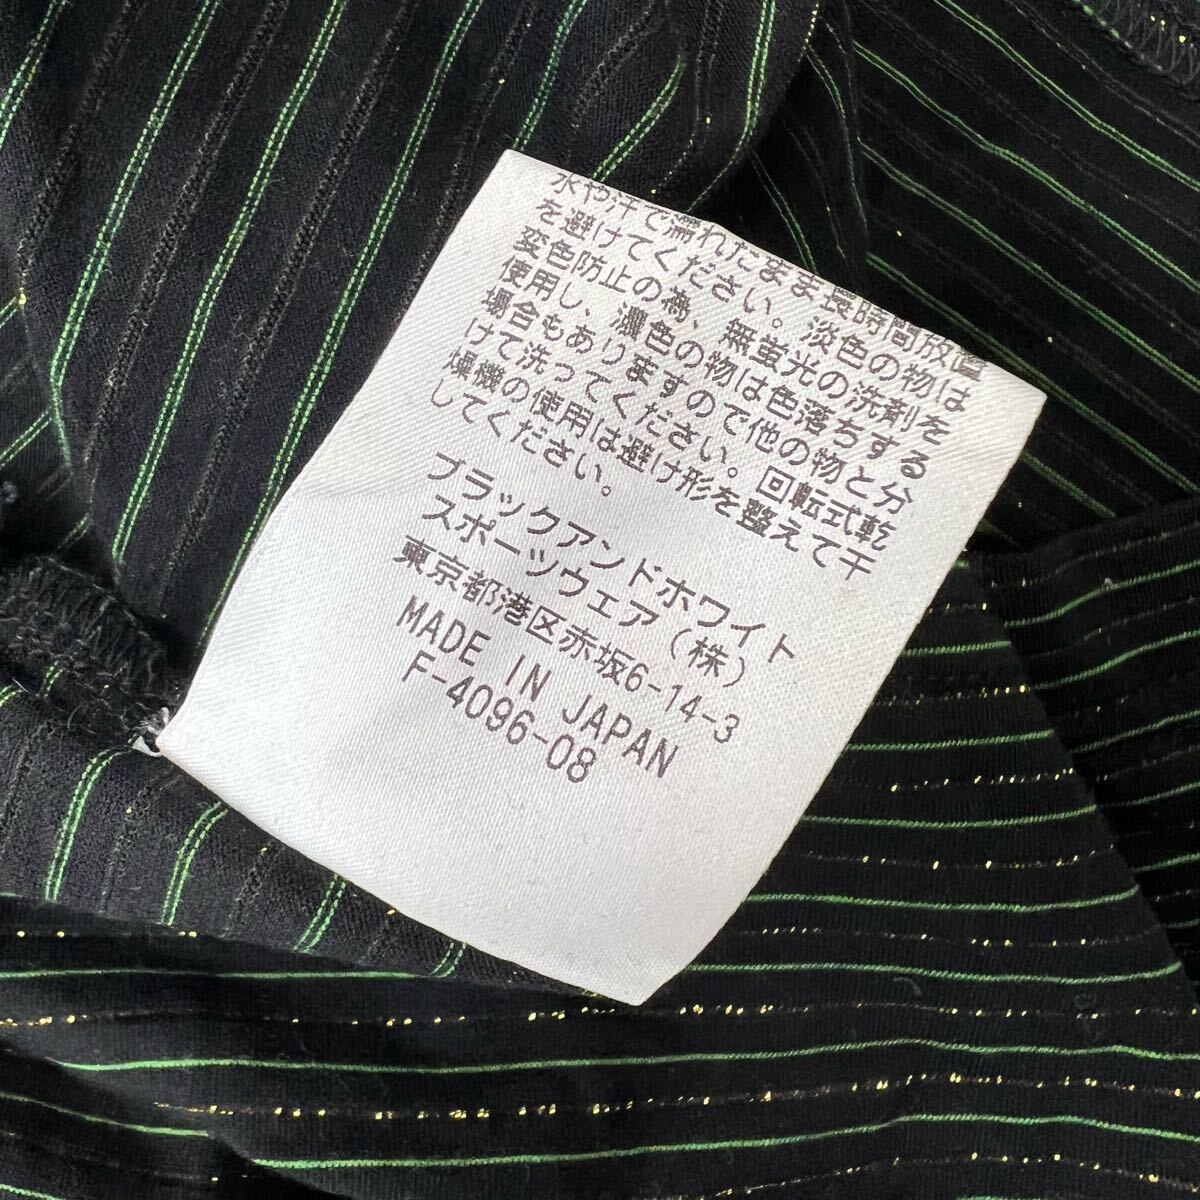 水や汗で濡れたまま長時間放置
を避けてください。淡色の物は
変色防止の為、無蛍光の洗剤を
使用し、濃色の物は色落ちする
場合もありますので他の物と分
けて洗ってください。回転式乾
燥機の使用は避け形を整えて干
してください。
ブラックアンドホワイト
スポーツウェア(株)
東京都港区赤坂6-14-3
MADE IN JAPAN
F-4096-08